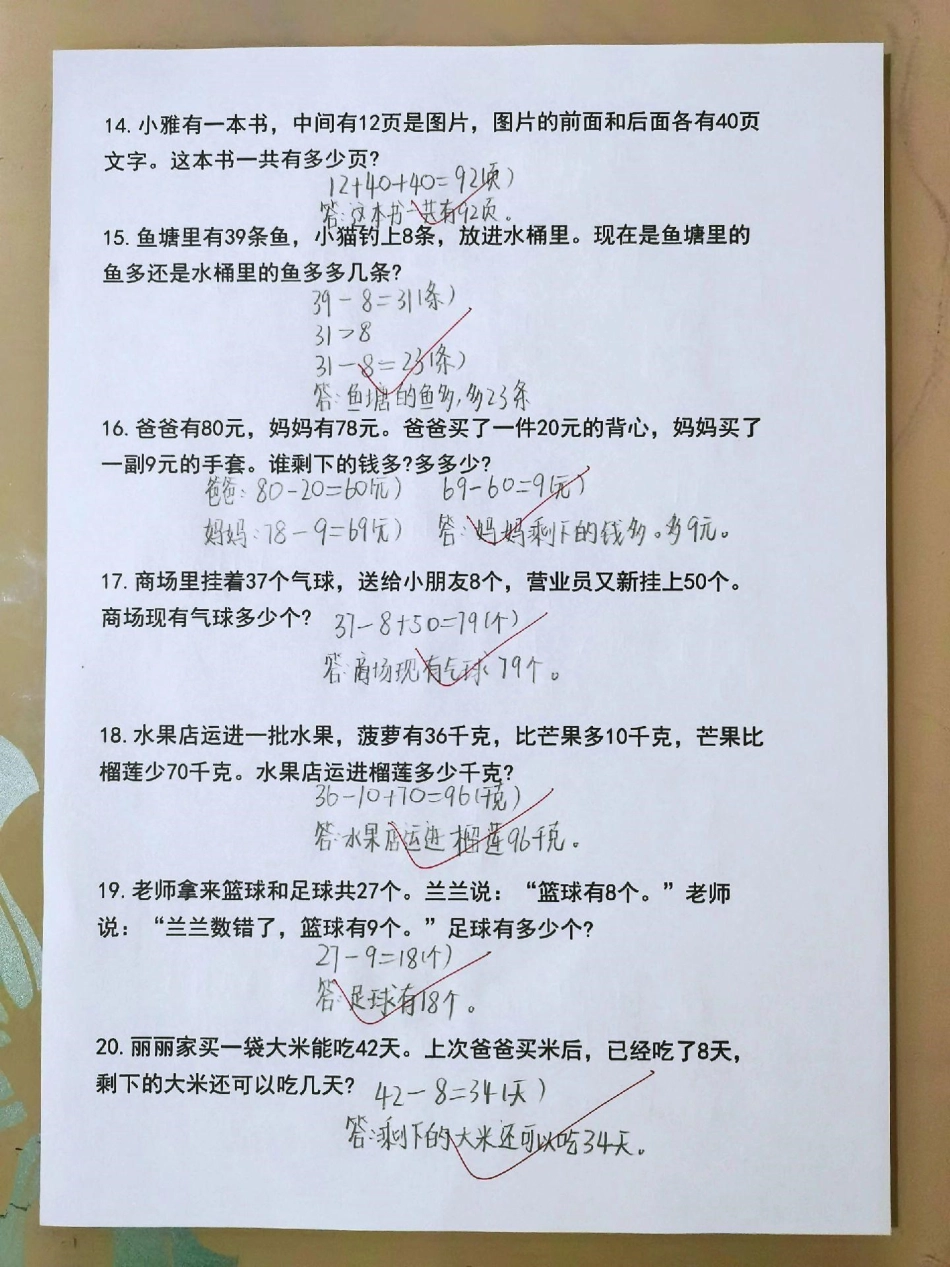 14. 小雅有一本书，中间有12页是图片，图片的前面和后面各有40页
文字。这本书一共有多少页?
12+40+40=92(页)
答:这本书一共有92页。
15. 鱼塘里有39条鱼，小猫钓上8条，放进水桶里。现在是鱼塘里的
鱼多还是水桶里的鱼多多几条?
39-8=31(条)
31>8
31-8=23(条)
答:鱼塘的鱼多,多23条
16. 爸爸有80元，妈妈有78元。爸爸买了一件20元的背心，妈妈买了
一副9元的手套。谁剩下的钱多?多多少?
爸爸:80-20=60(元) 69-60=9(元)
妈妈:78-9=69(元) 答:妈妈剩下的钱多。多9元。
17. 商场里挂着37个气球，送给小朋友8个，营业员又新挂上50个。
商场现有气球多少个? 37-8+50=79(个)
答:商场现有气球79个。
18. 水果店运进一批水果，菠萝有36千克，比芒果多10千克，芒果比
榴莲少70千克。水果店运进榴莲多少千克?
36-10+70=96(千克)
答:水果店运进榴莲96千克。
19. 老师拿来篮球和足球共27个。兰兰说：“篮球有8个。”老师
说：“兰兰数错了，篮球有9个。”足球有多少个?
27-9=18(个)
答:足球有18个。
20. 丽丽家买一袋大米能吃42天。上次爸爸买米后，已经吃了8天，
剩下的大米还可以吃几天? 42-8=34(天)
答:剩下的大米还可以吃34天。